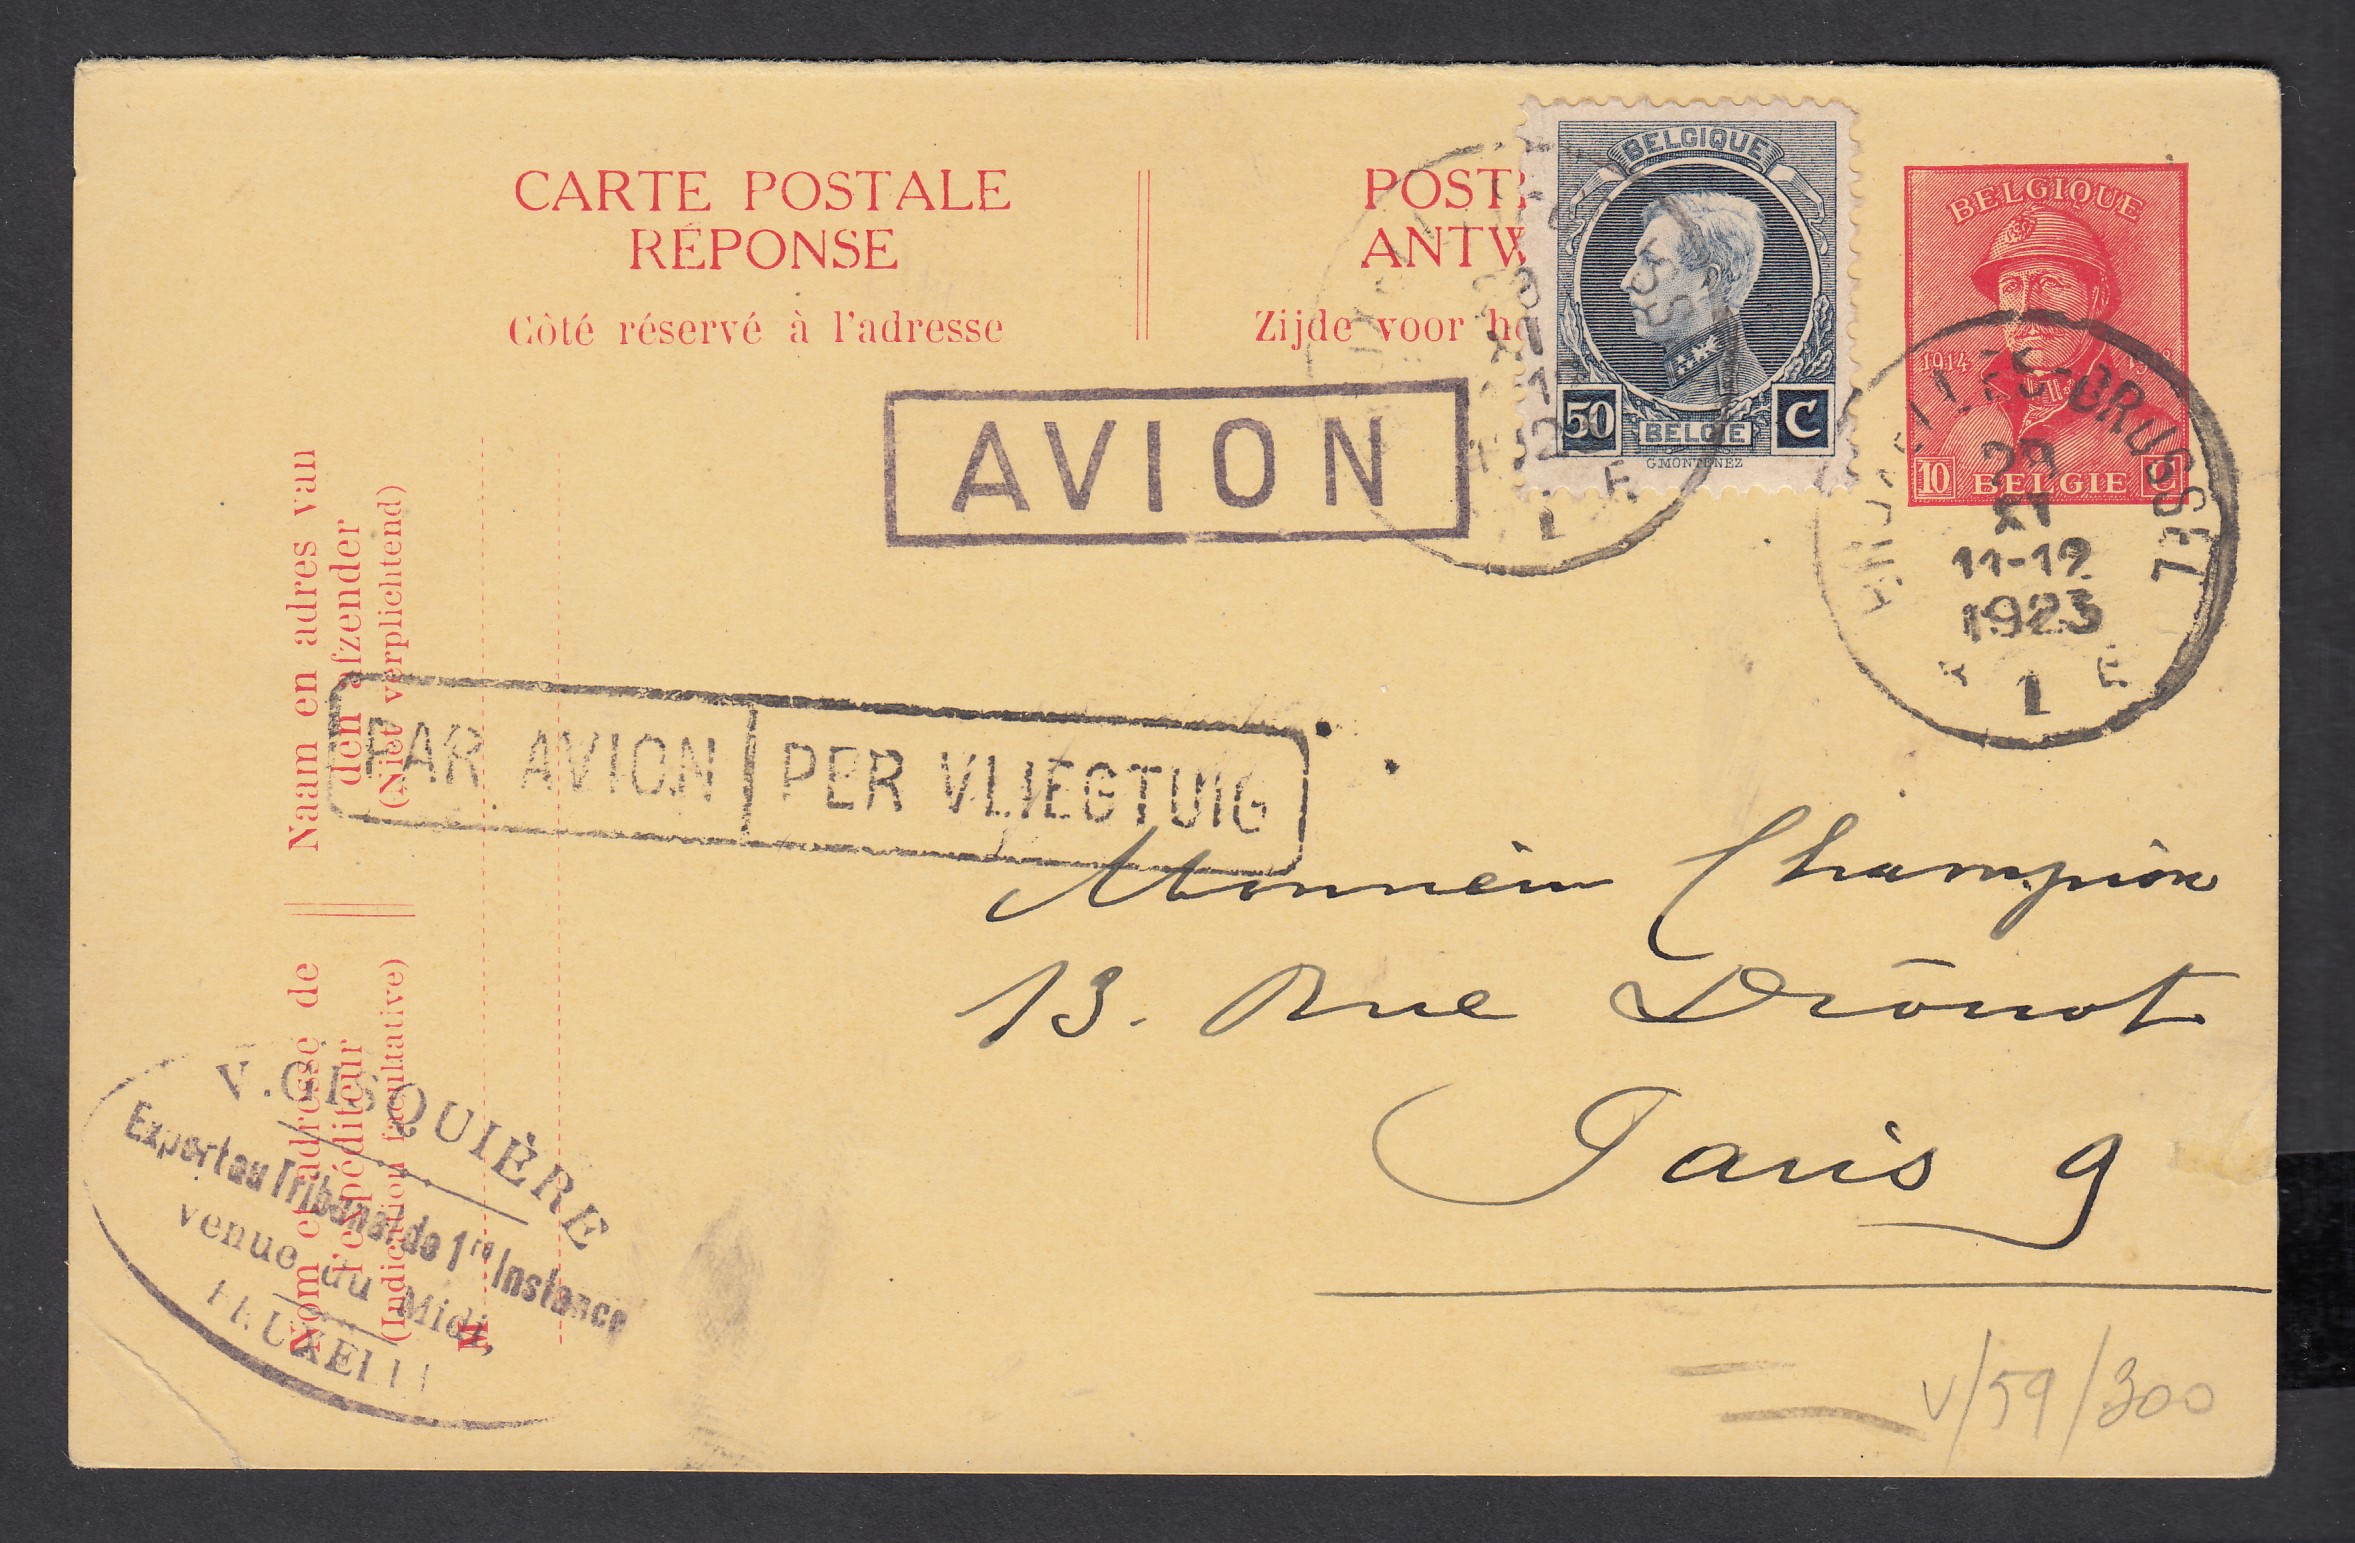 CARTE POSTALE
RÉPONSE
Côté réservé à l'adresse
POST
ANTW
Zijde voor
BELGIQUE
50 C
BELGIE
G.MONTENEZ
BELGIQUE
1914
10 BELGIE C
BRUXELLES-BRUSSEL
29
XI
11-12
1923
1
AVION
PAR AVION PER VLIEGTUIG
Naam en adres van
den afzender
(Niet verplichtend)
Nom et adresse de
l'expéditeur
(Indication facultative)
M
Monsieur Champion
13. Rue Drouot
Paris 9
V. GISQUIÈRE
Expert au Tribunal de 1re Instance
venue du Midi,
V/59/300